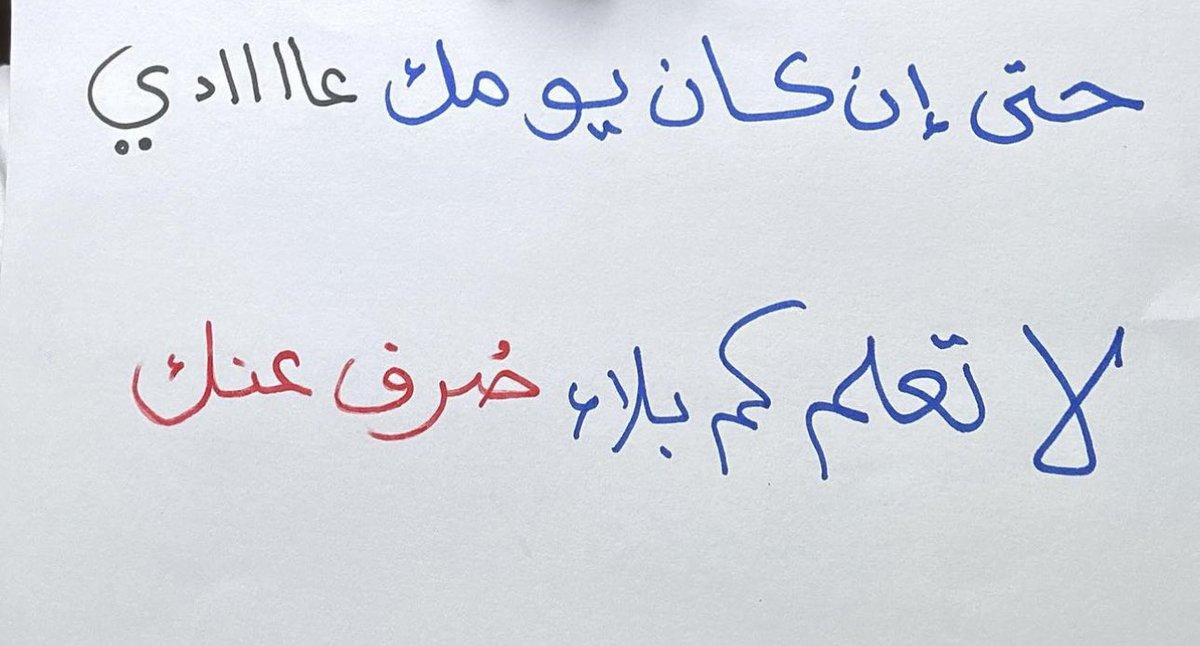 حتى إن كان يومك عااااادي
لا تعلم كم بلاء صُرف عنك